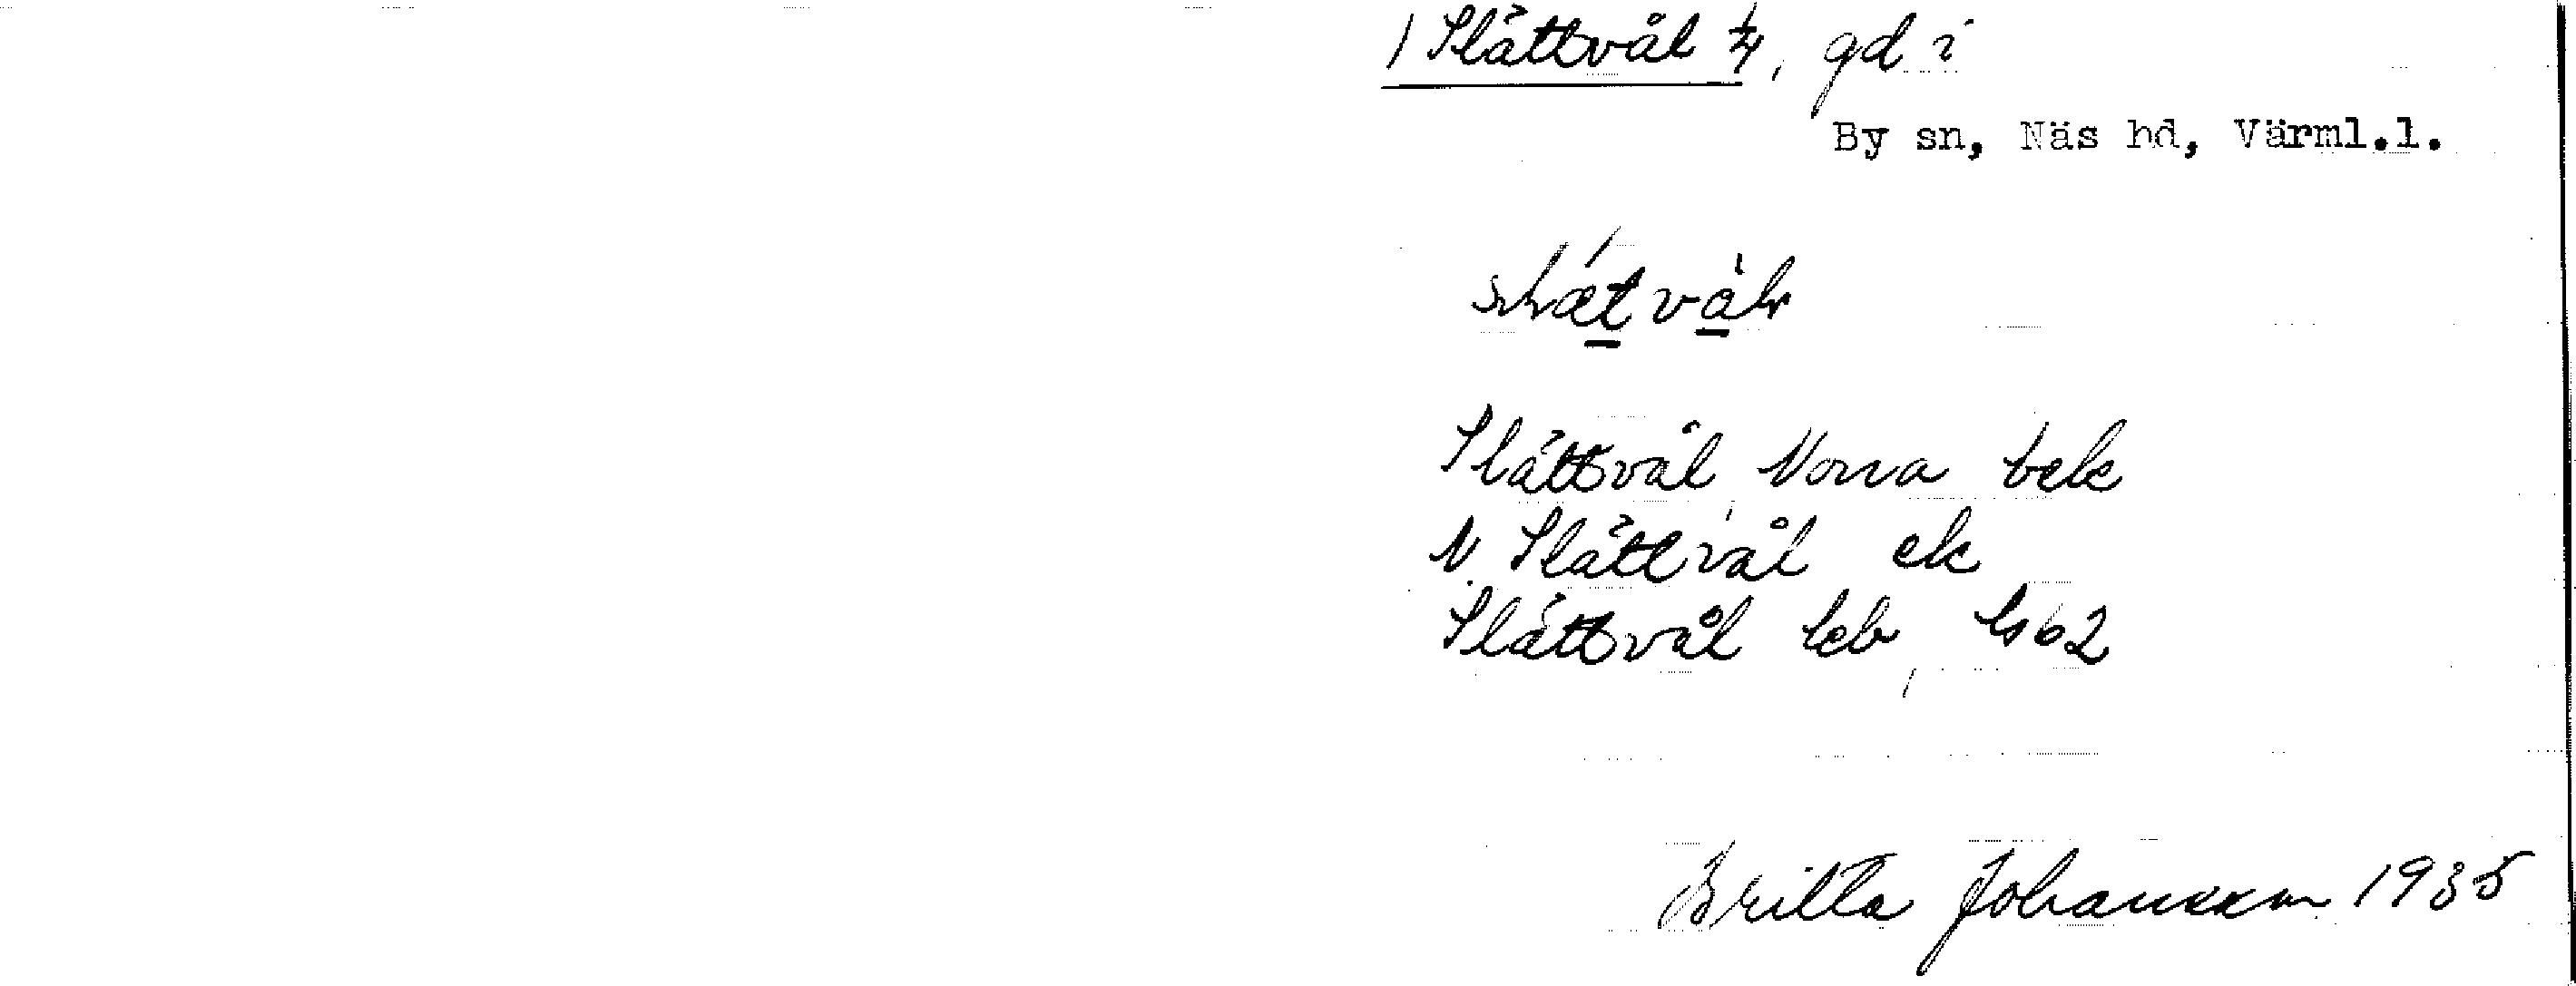 1 Slättvål 1/4, gd i
By sn, Näs hd, Värml.l.
Slättvål, Norra bek
N. Slättvål ek
Slättvål hcb, ls 62
Britta Johansson 1935